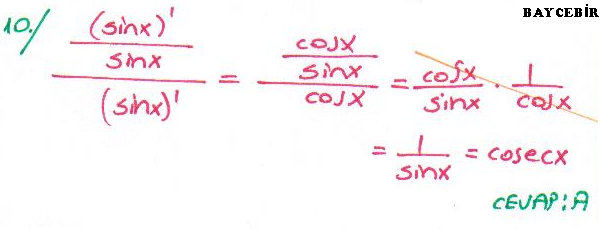 BAYCEBİR
10./ ((sinx)' / sinx) / (sinx)' = (cosx / sinx) / cosx = cosx / sinx · 1 / cosx
= 1 / sinx = cosecx
CEVAP: A